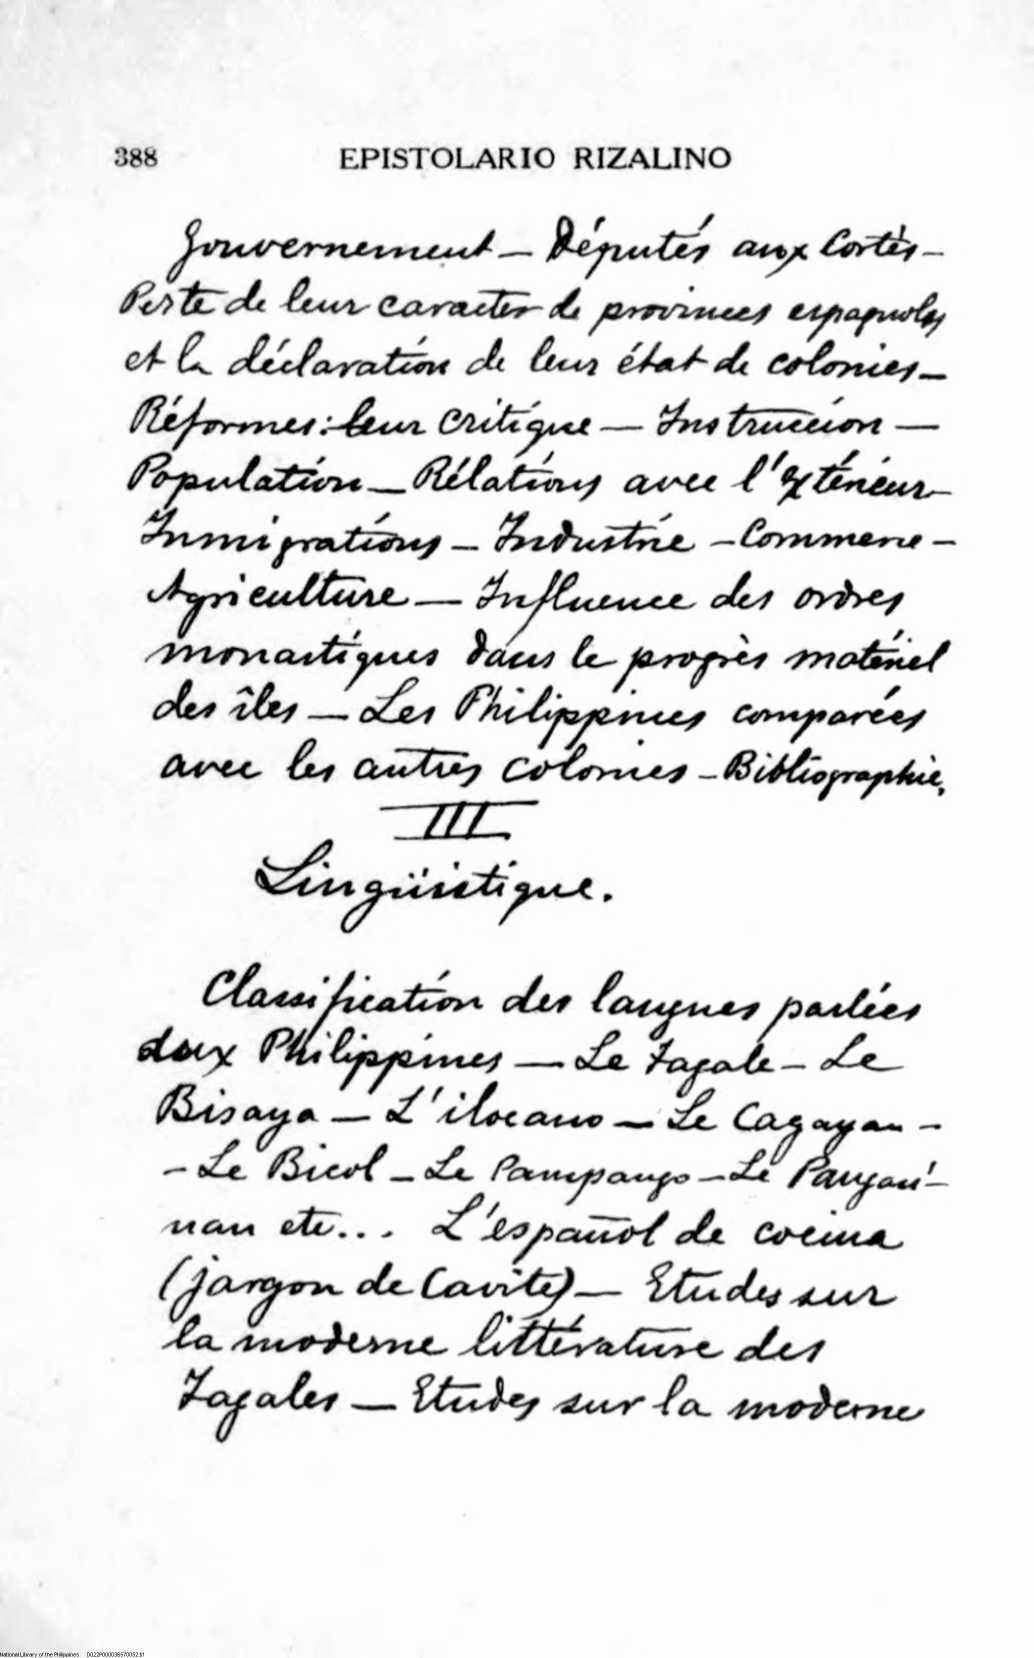 388 EPISTOLARIO RIZALINO
Gouvernement — Députés aux Cortès —
Perte de leur caracter de provinces espagnoles
et la déclaration de leur état de colonies —
Réformes: leur critique — Instruccion —
Population — Rélations avec l'extérieur —
Inmigrations — Industrie — Commerce —
Agriculture — Influence des ordres
monastiques dans le progrès matériel
des îles — Les Philippines comparées
avec les autres colonies — Bibliographie.
III
Lingüistique.
Classification des langues parlées
aux Philippines — Le Tagale — Le
Bisaya — L'ilocano — Le Cagayan —
— Le Bicol — Le Pampango — Le Pangasi-
nan etc... L'español de cocina
(jargon de Cavite) — Etudes sur
la moderne littérature des
Tagales — Etudes sur la moderne
National Library of the Philippines